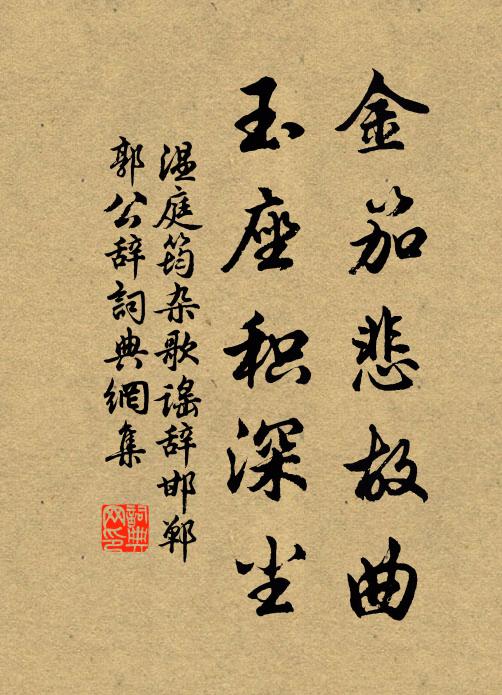 金笳悲故曲
玉座积深尘
温庭筠杂歌謡辞邯郸
郭公辞詞典網集
詞典
网印